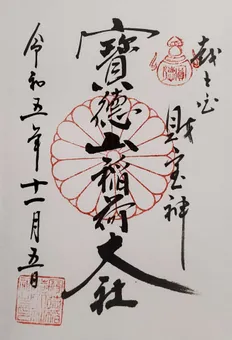 財宝神
寶徳山稲荷大社
令和五年十一月五日